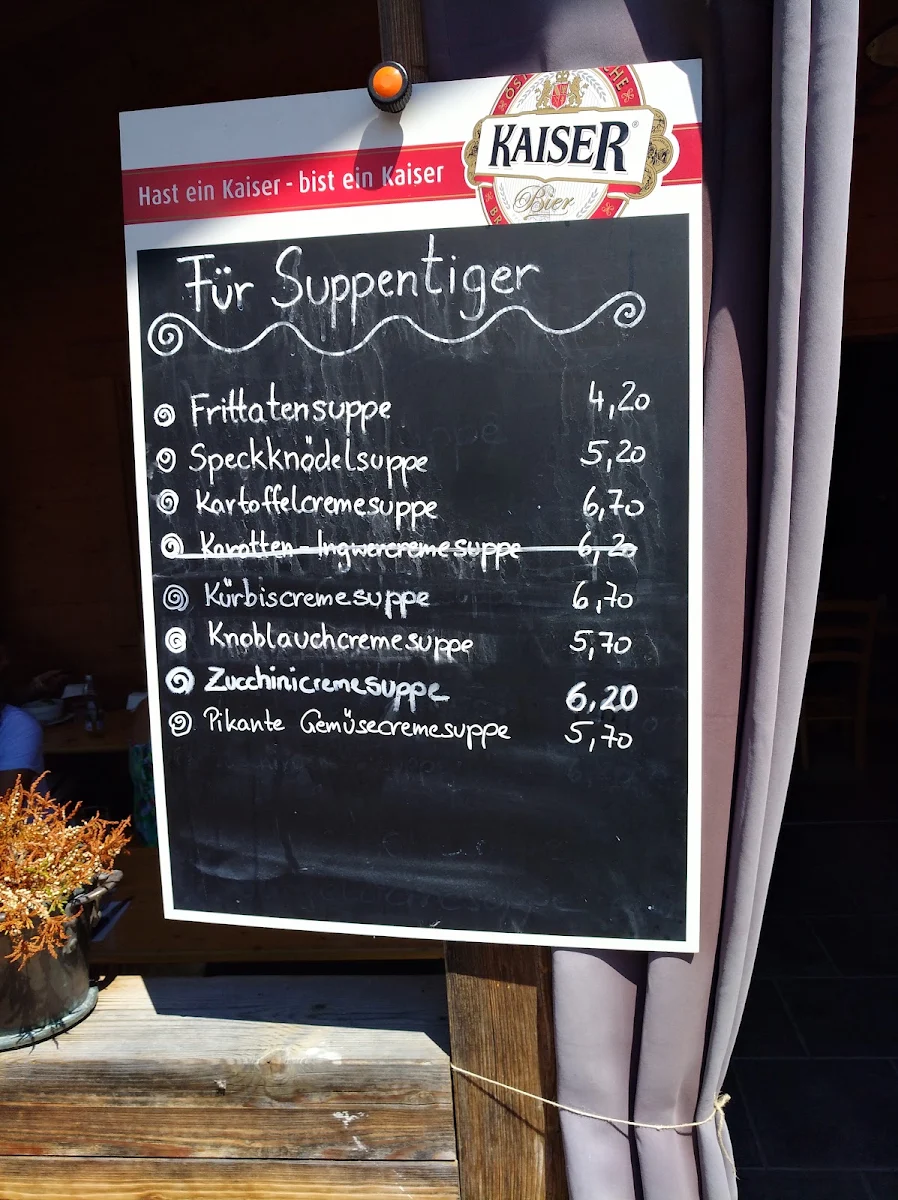 Hast ein Kaiser - bist ein Kaiser
KAISER
Bier
Für Suppentiger
Frittatensuppe 4,20
Speckknödelsuppe 5,20
Kartoffelcremesuppe 6,70
Karotten-Ingwercremesuppe 6,20
Kürbiscremesuppe 6,70
Knoblauchcremesuppe 5,70
Zucchinicremesuppe 6,20
Pikante Gemüsecremesuppe 5,70